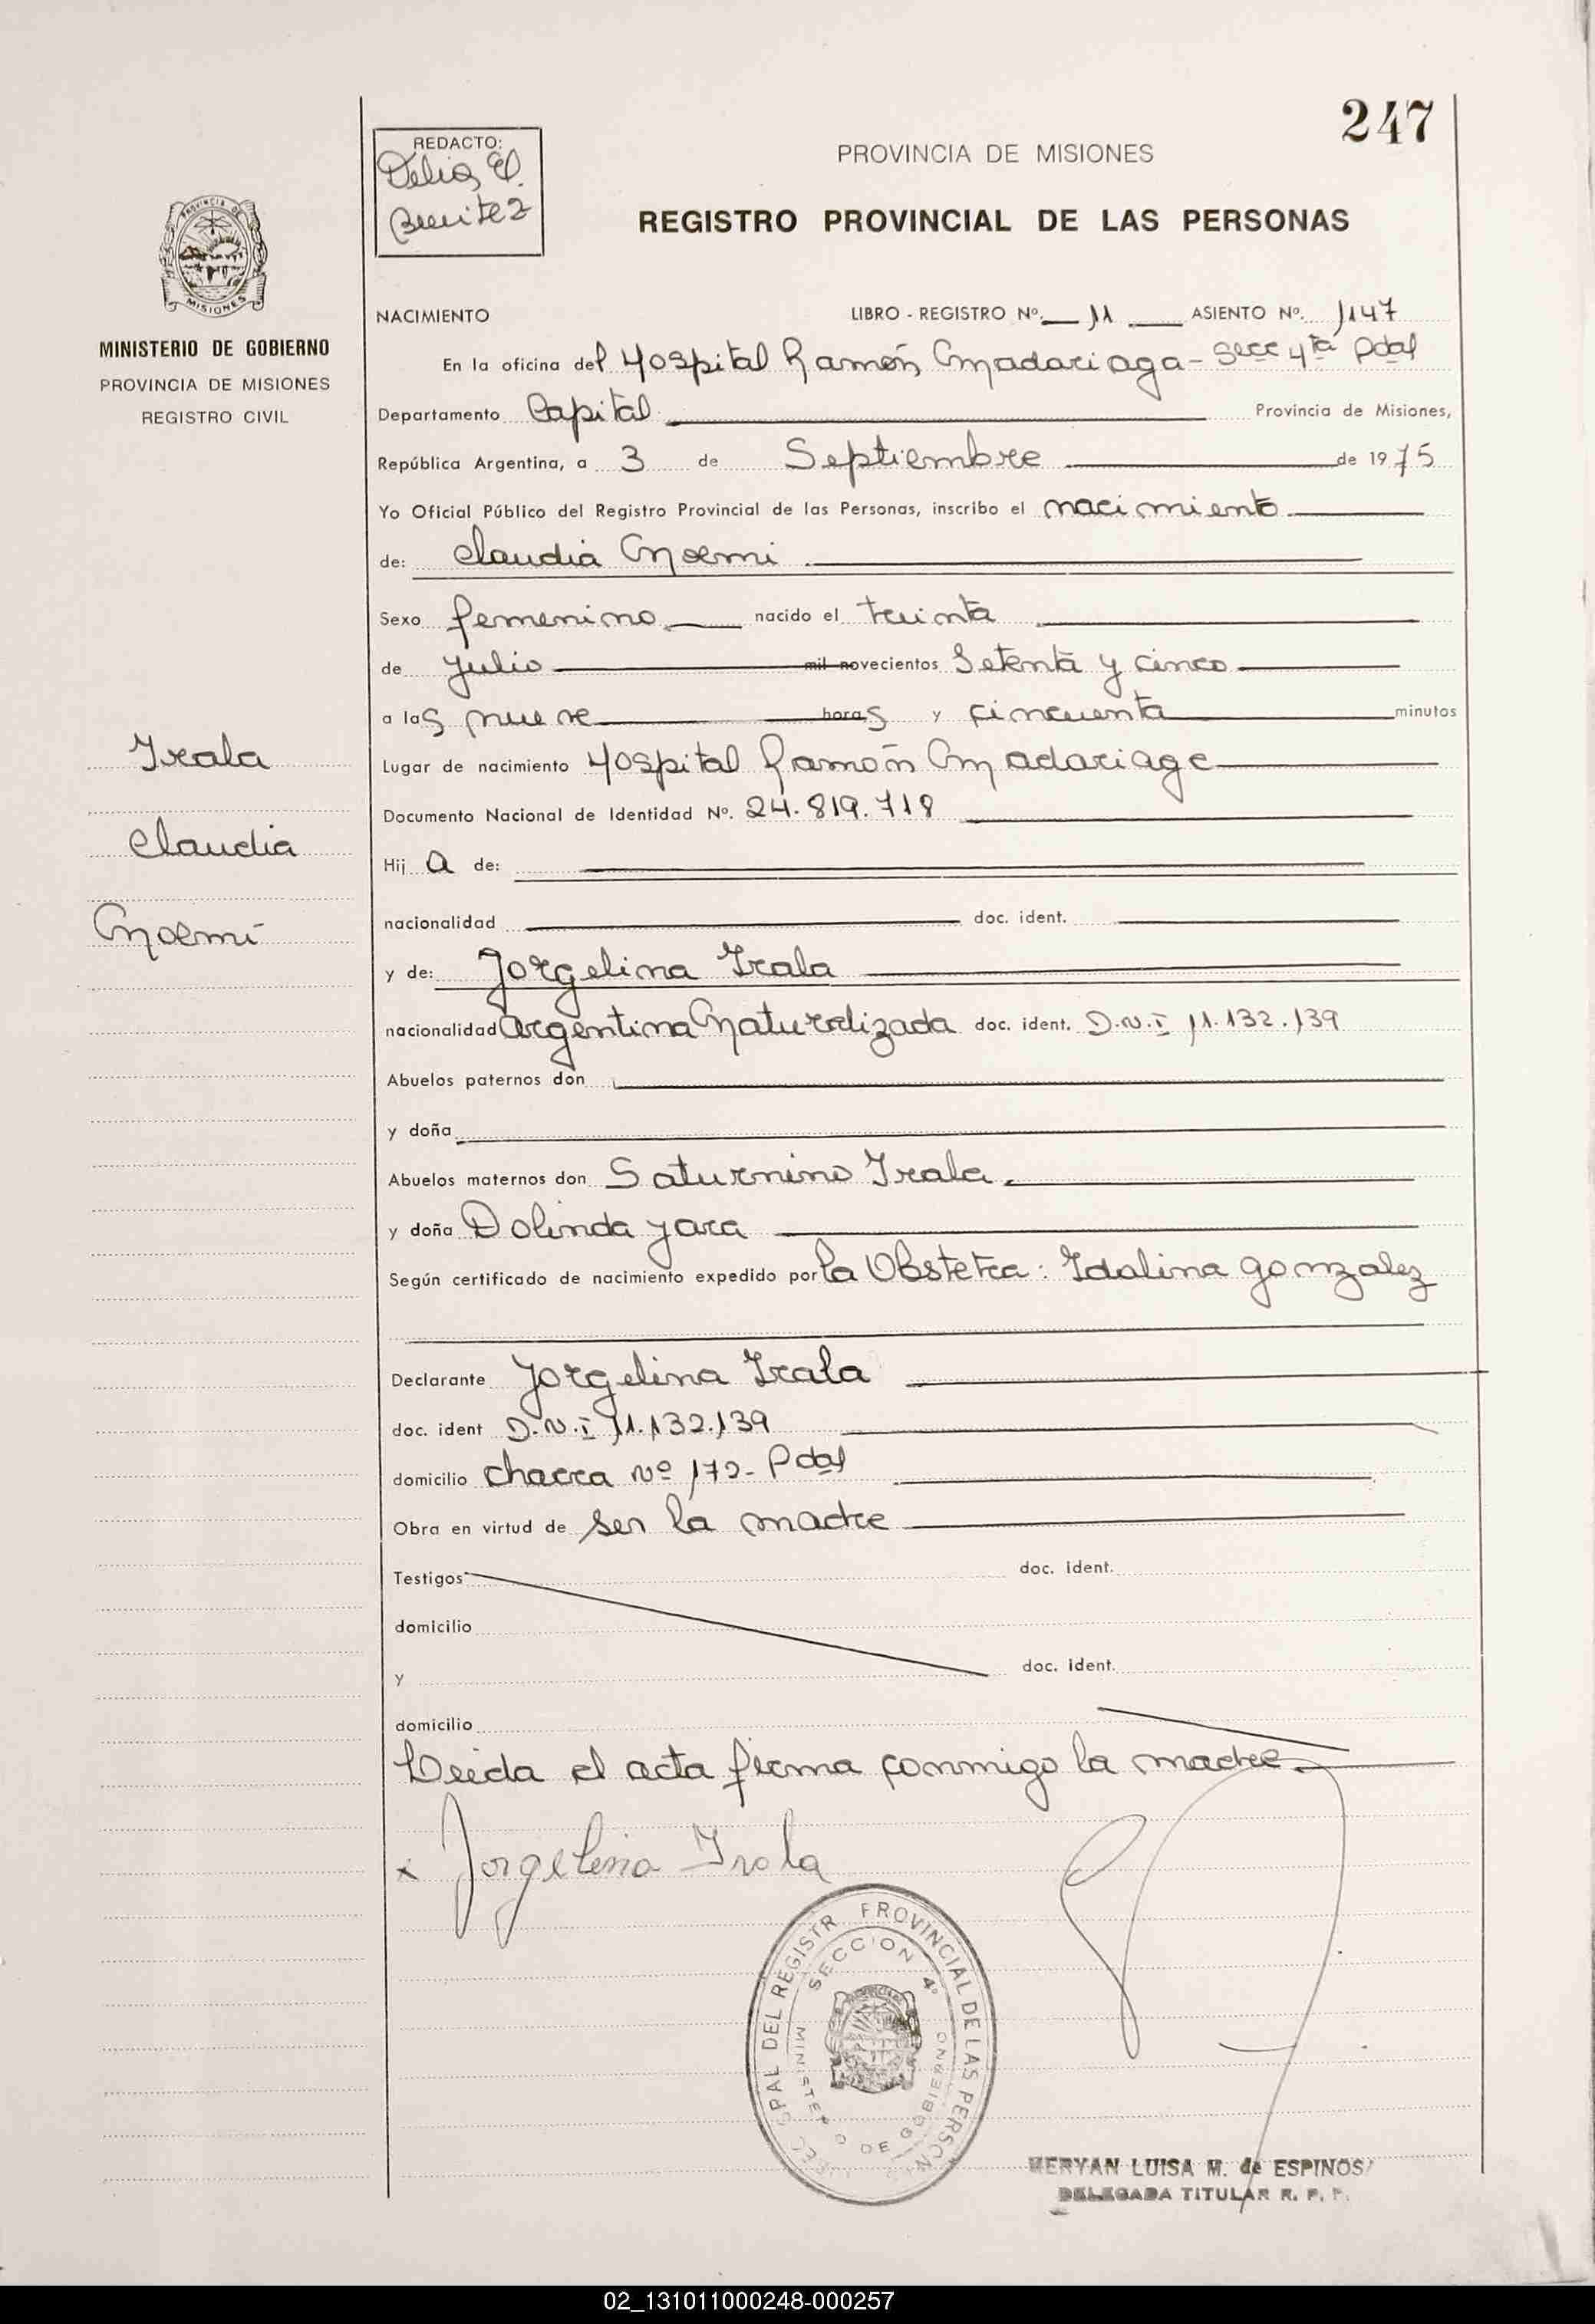 247
REDACTO:
Delia E.
Benitez
PROVINCIA DE MISIONES
REGISTRO PROVINCIAL DE LAS PERSONAS
MISIONES
MINISTERIO DE GOBIERNO
PROVINCIA DE MISIONES
REGISTRO CIVIL
NACIMIENTO LIBRO - REGISTRO Nº. 11 ASIENTO Nº. 1147
En la oficina del Hospital Ramón Madariaga - Secc 4ta Pdas
Departamento Capital Provincia de Misiones,
República Argentina, a 3 de Septiembre de 1975
Yo Oficial Público del Registro Provincial de las Personas, inscribo el nacimiento
de: Claudia Noemi
Sexo femenino nacido el treinta
de Julio mil novecientos Setenta y cinco
a las nueve horas y cincuenta minutos
Irala
Claudia
Noemí
Lugar de nacimiento Hospital Ramón Madariaga
Documento Nacional de Identidad Nº. 24.819.718
Hij a de:
nacionalidad doc. ident.
y de: Jorgelina Irala
nacionalidad Argentina Naturalizada doc. ident. D.N.I 11.132.139
Abuelos paternos don
y doña
Abuelos maternos don Saturnino Irala
y doña Dolinda Jara
Según certificado de nacimiento expedido por la Obstetra: Idalina Gonzalez
Declarante Jorgelina Irala
doc. ident D.N.I 11.132.139
domicilio Chacra Nº 172- Pdas
Obra en virtud de ser la madre
Testigos doc. ident.
domicilio
y doc. ident.
domicilio
Leida el acta firma conmigo la madre
x Jorgelina Irala
PAL DEL REGISTR PROVINCIAL DE LAS PERSON
SECCION 4º
MINISTERIO DE GOBIERNO
MERYAN LUISA M. de ESPINOS
DELEGADA TITULAR R. P. P.
02_131011000248-000257